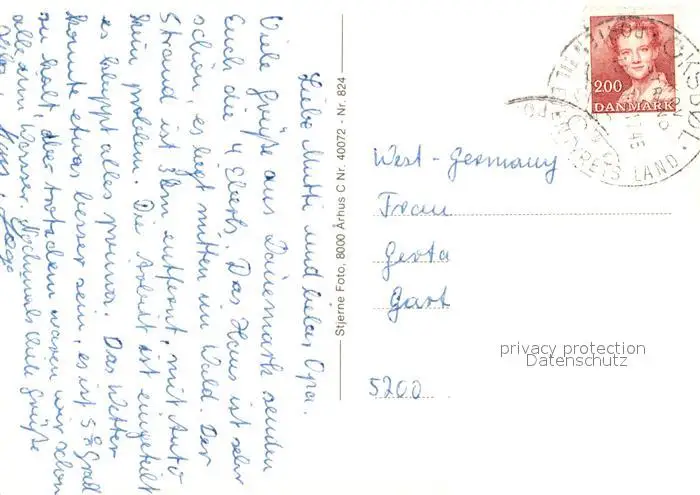 Liebe Mutti und lieber Opa.
Viele Grüße aus Dänemark senden
Euch die 4 Eberts. Das Haus ist sehr
schön, es liegt mitten im Wald. Der
Strand ist 3 km entfernt, mit Auto
kein problem. Die Arbeit ist eingeteilt
es klappt alles prima. Das Wetter
könnte etwas besser sein, es ist 5° Grad
zu kalt, aber trotzdem waren wir schon
alle am Wasser. Nochmals viele Grüße
Stjerne Foto, 8000 Århus C Nr. 40072 - Nr. 824
200
DANMARK
LAND
West-Germany
Frau
Gerta
Gart
5200
privacy protection
Datenschutz